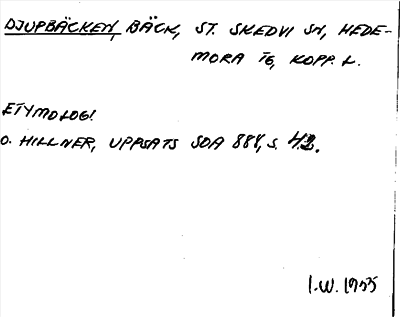 DJUPBÄCKEN, BÄCK, ST. SKEDVI SN, HEDE-
MORA TG, KOPP. L.
ETYMOLOGI.
O. HILLNER, UPPSATS SOA 888, S. 42.
I.W. 1955